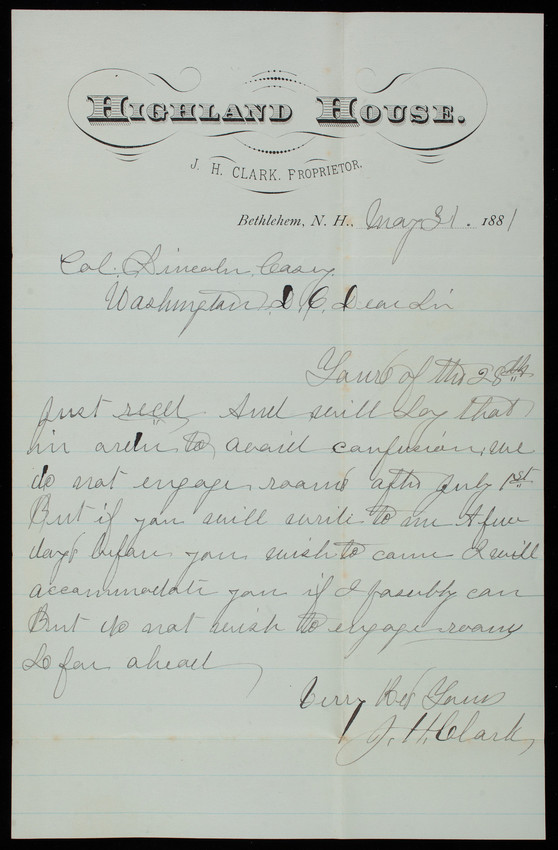 HIGHLAND HOUSE.
J. H. CLARK. PROPRIETOR.
Bethlehem, N. H., May 31. 1881
Col. Lincoln Casey
Washington D. C. Dear Sir
Yours of the 28th
just recd, And will say that
in order to avoid confusion, we
do not engage rooms after July 1st
But if you will write to me A few
days before you wish to come I will
accommodate you if I possibly can
But do not wish to engage rooms
So far ahead
Verry Res Yours
J. H. Clark,